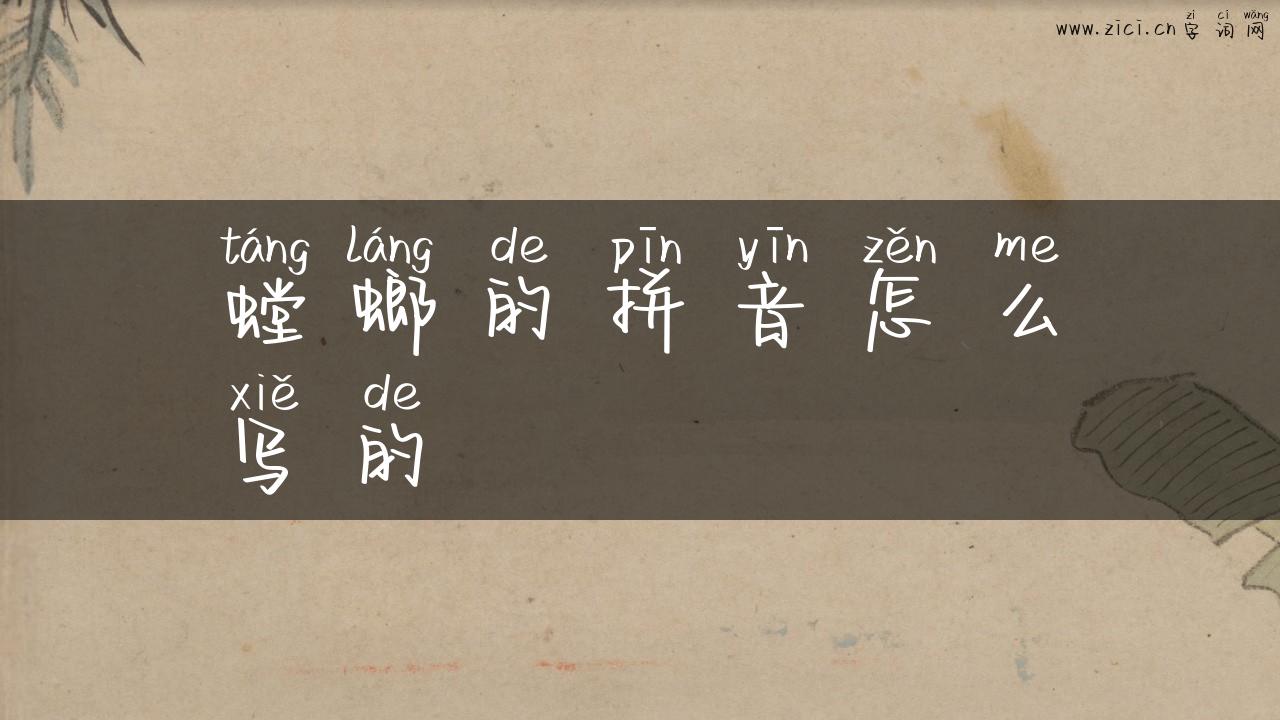 zì cí wǎng
www.zici.cn 字词网
táng láng de pīn yīn zěn me
螳螂的拼音怎么
xiě de
写的